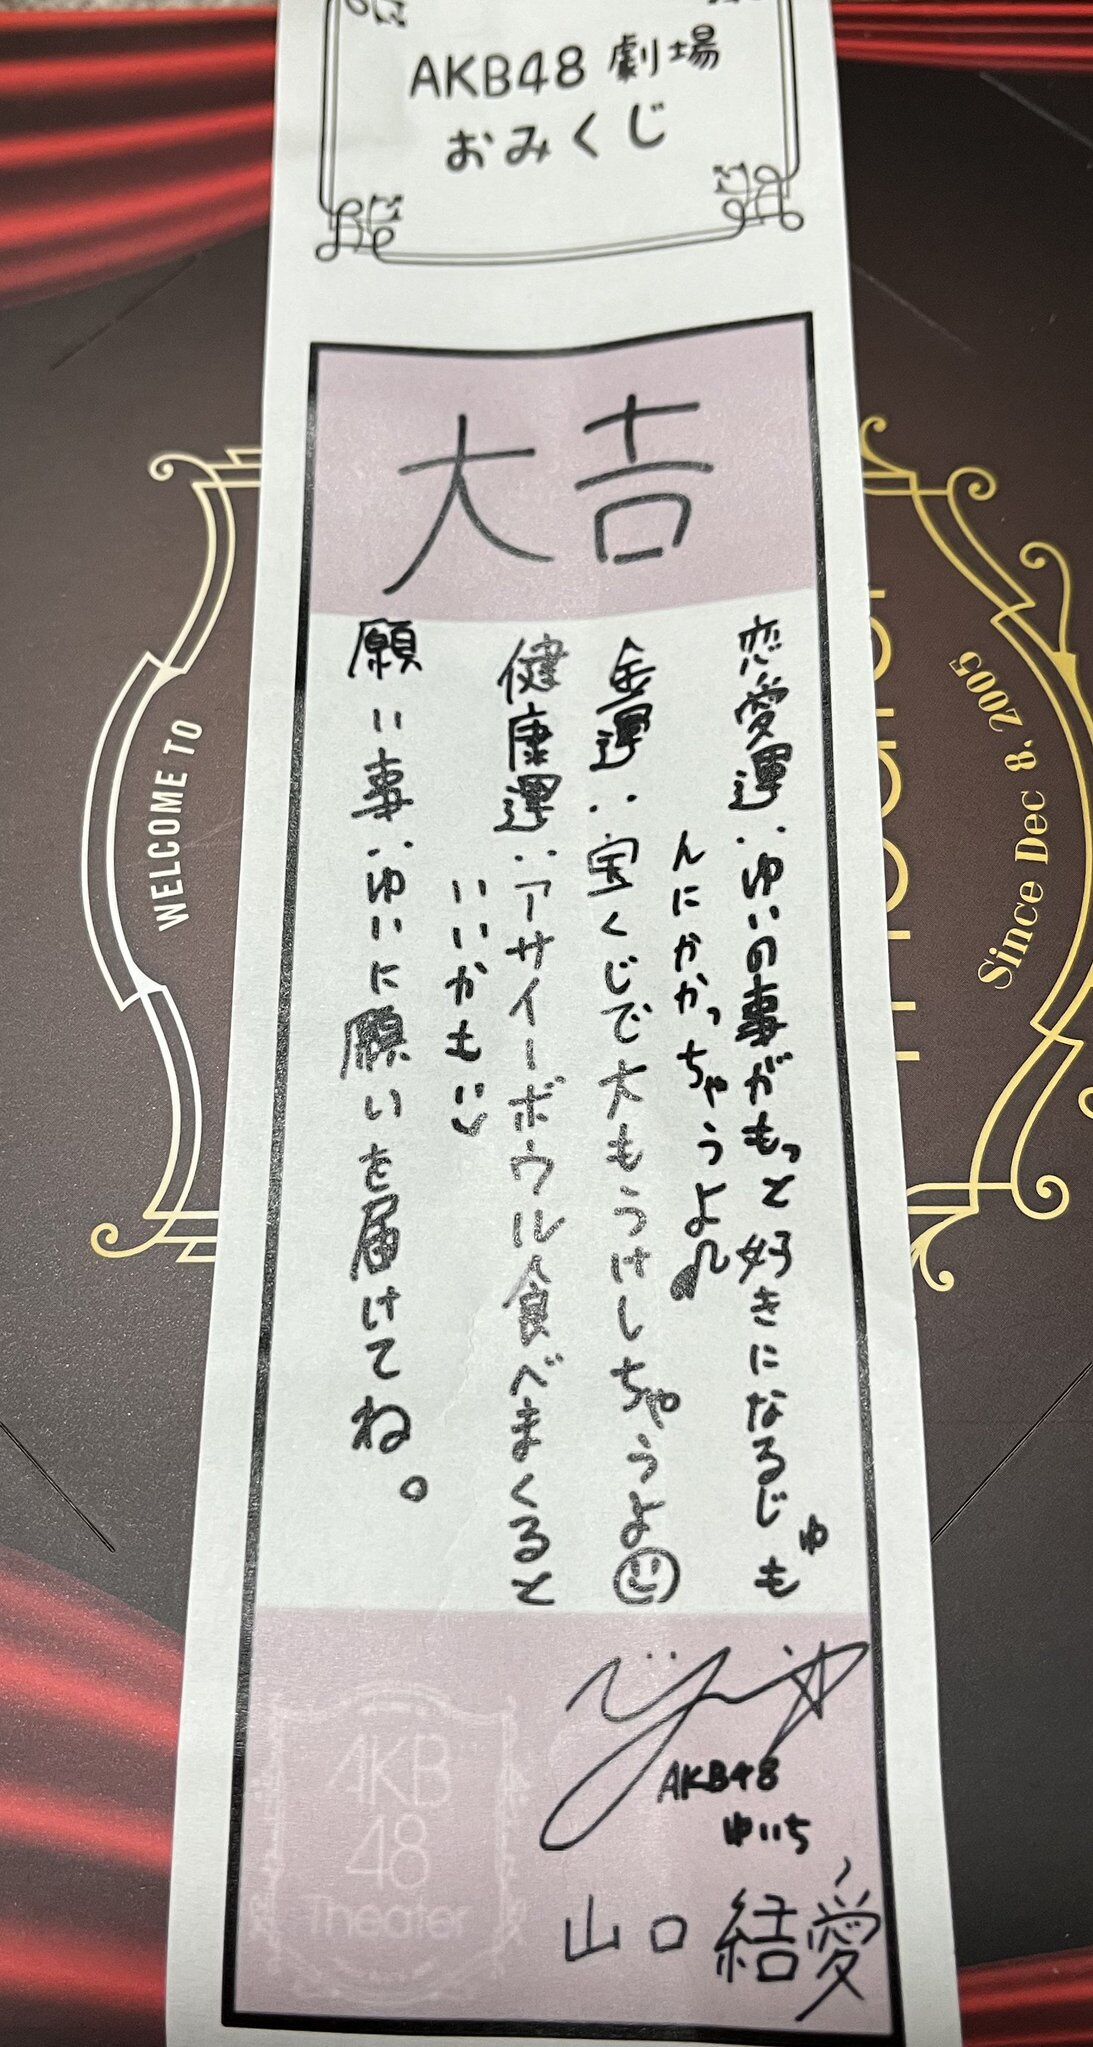 AKB48 劇場
おみくじ
大吉
恋愛運:ゆいの事がもっと好きになるじゅも
んにかかっちゃうよ♪
金運:宝くじで大もうけしちゃうよ☺
健康運:アサイーボウル食べまくると
いいかも
願い事:ゆいに願いを届けてね。
AKB48
ゆいち
山口 結愛
AKB
48
Theater
WELCOME TO
Since Dec 8. 2005